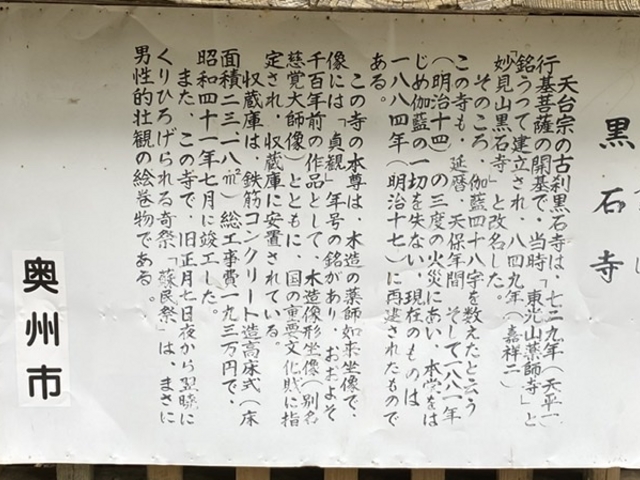 黒石寺
天台宗の古刹黒石寺は、七二九年（天平一
行基菩薩の開基で、当時「東光山薬師寺」と
銘うって建立され、八四九年（嘉祥二）
「妙見山黒石寺」と改名した。
そのころ、伽藍四十八宇を数えたと云う
この寺も、延暦、天保年間、そして一八八一年
（明治十四）の三度の火災にあい、本堂をは
じめ伽藍の一切を失ない、現在のものは
一八八四年（明治十七）に再建されたもので
ある。
この寺の本尊は、木造の薬師如来坐像で、
像には「貞観」年号の銘があり、おおよそ
千百年前の作品として、木造像形坐像（別名
慈覚大師像）とともに、国の重要文化財に指
定され、収蔵庫に安置されている。
収蔵庫は、鉄筋コンクリート造高床式（床
面積二三、一八㎡）総工事費一九三万円で、
昭和四十一年七月に竣工した。
また、この寺で、旧正月七日夜から翌暁に
くりひろげられる奇祭「蘇民祭」は、まさに
男性的壮観の絵巻物である。
奥州市